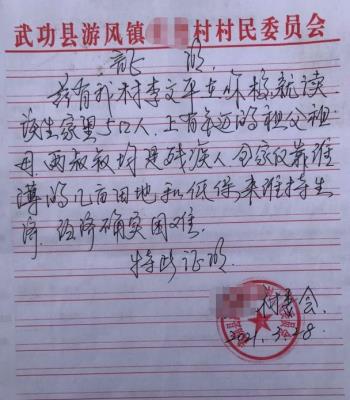 武功县游风镇 村村民委员会
证明
兹有我村李文平在你校就读
该生家里5口人,上有年迈的祖父祖
母,两叔叔均是残疾人全家仅靠维
薄的几亩田地和低保来维持生
济,经济确实困难.
特此证明.
村委会.
2021.3.28